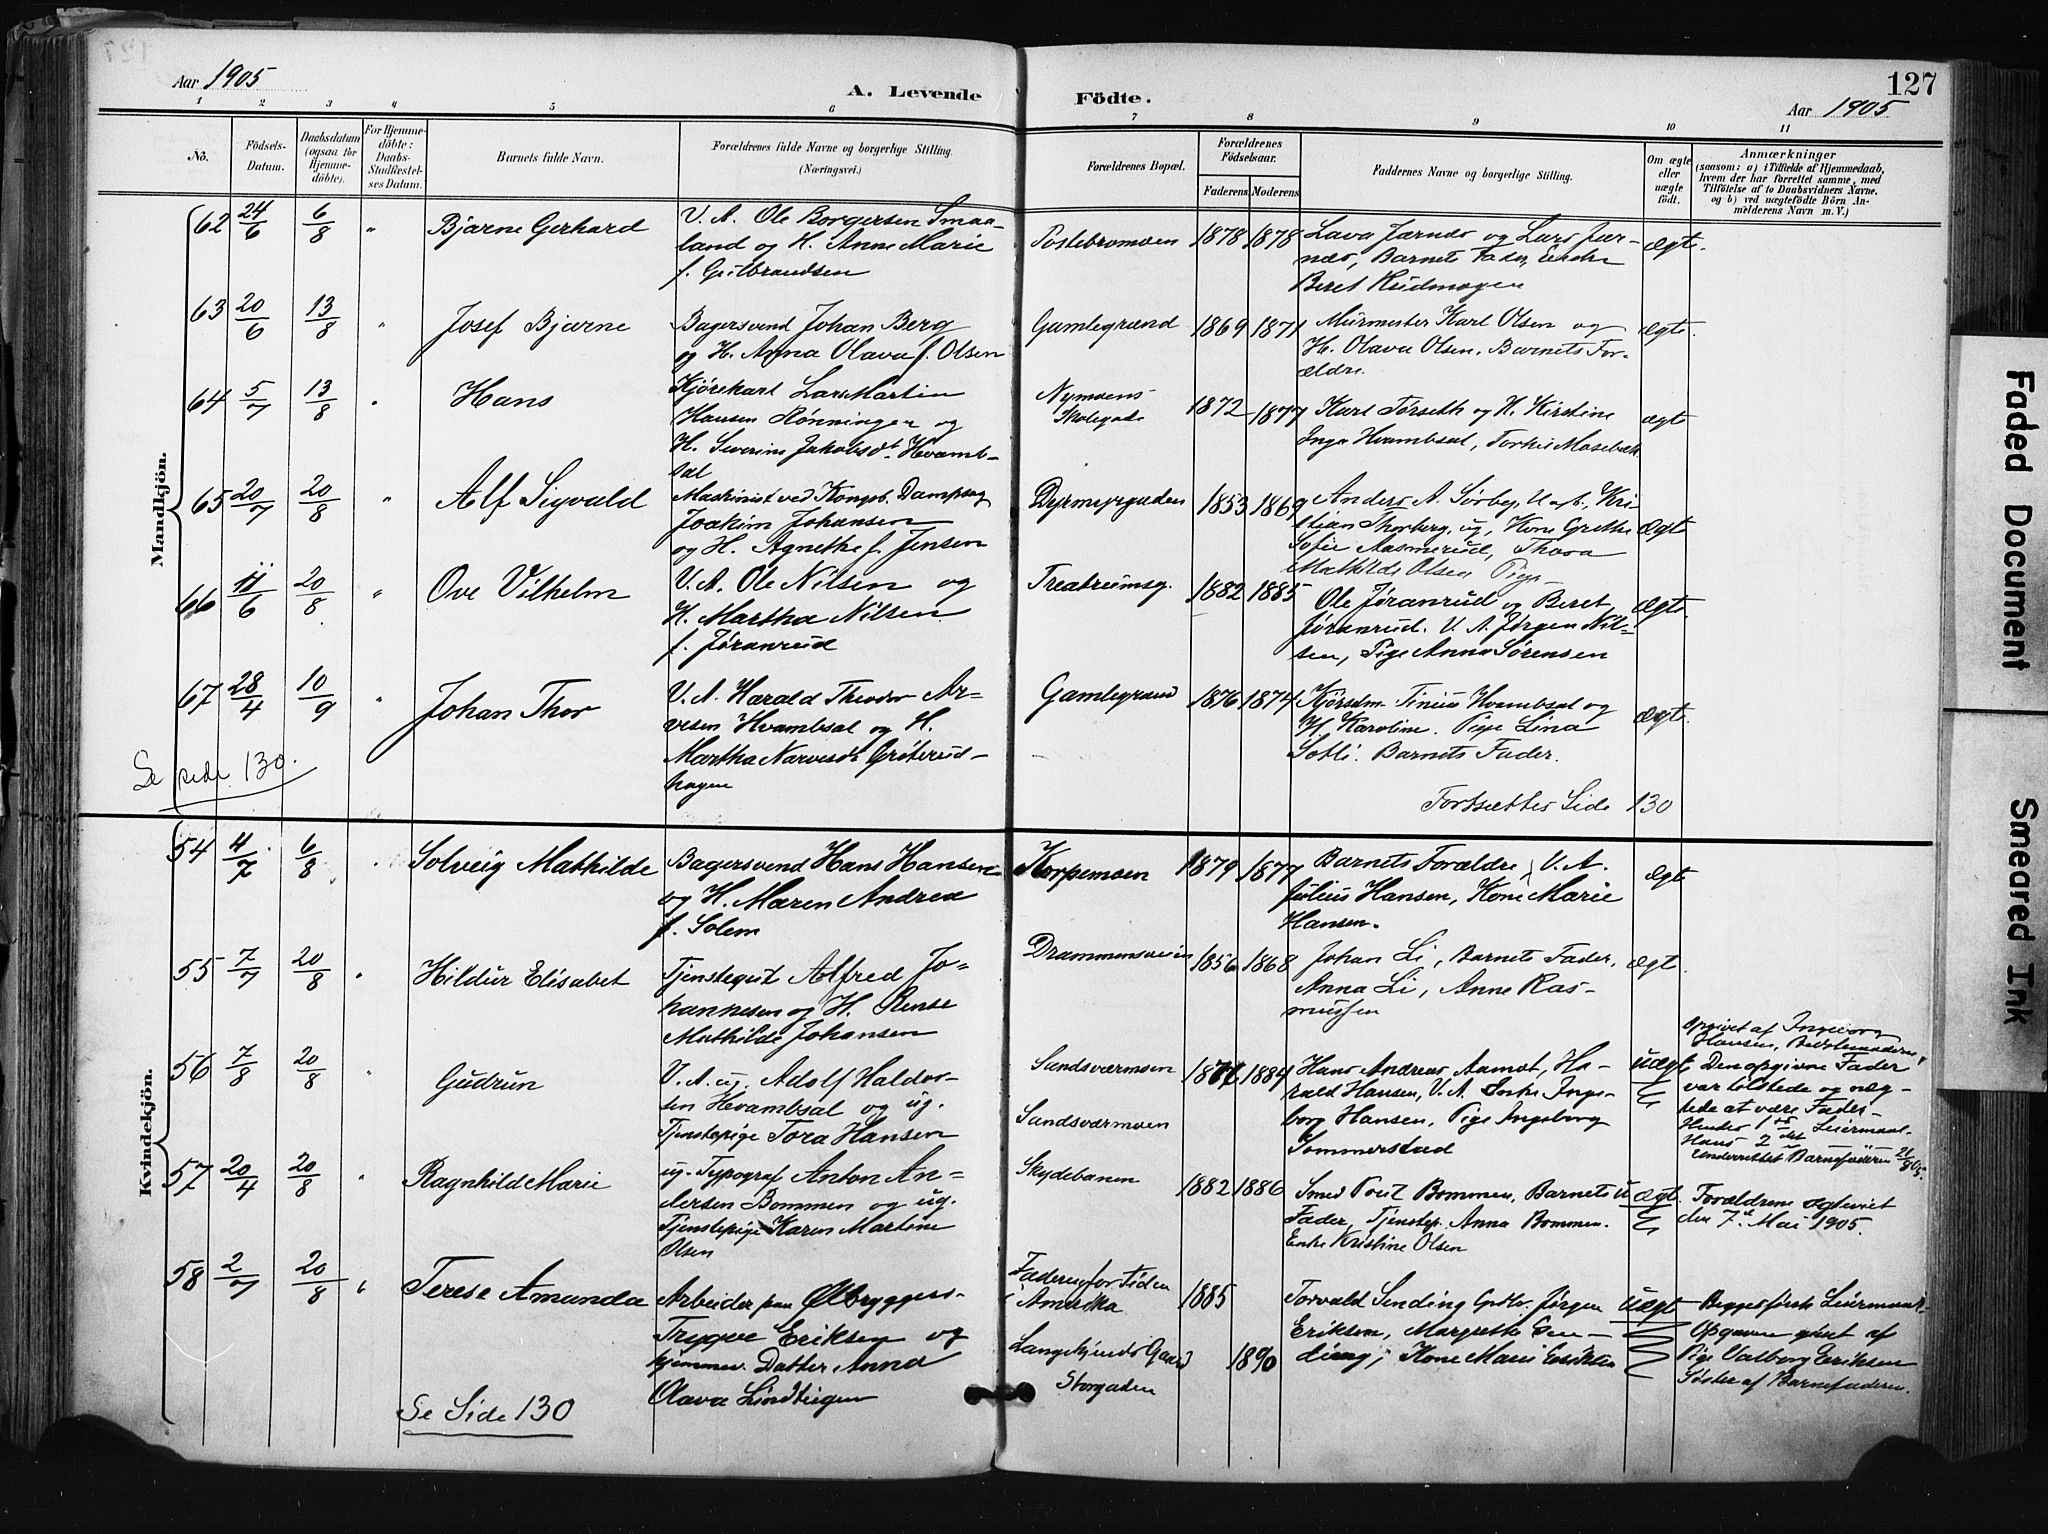 Aar 1905
A. Levende Födte.
127
Aar 1905
1 2 3 4 5 6 7 8 9 10 11
No.
Födsels-
Datum.
Daabsdatum
(ogsaa for
Hjemme-
döbte).
For Hjemme-
döbte:
Daabs-
Stadfæstel-
ses Datum.
Barnets fulde Navn.
Forældrenes fulde Navne og borgerlige Stilling.
(Næringsvei.)
Forældrenes Bopæl.
Forældrenes
Födselsaar.
Faderens. Moderens.
Faddernes Navne og borgerlige Stilling.
Om ægte
eller
uægte
födt.
Anmærkninger
(saasom: a) i Tilfælde af Hjemmedaab,
hvem der har forrettet samme, med
Tilföielse af to Daabsvidners Navne,
og b) ved uægtefödte Börn An-
melderens Navn m. V.)
Mandkjön.
62 24/6 6/8 "
Bjarne Gerhard
V. A. Ole Borgersen Smaa-
land og H. Anne Marie
f. Gulbrandsen
Postebromoen
1878 1878
Lava Jarnæs og Lars Jar-
næs, Barnets Fader, Enke
Beret Rudmogen
ægte.
63 20/6 13/8 "
Josef Bjarne
Bagersvend Johan Berg
og H. Anna Olava f. Olsen
Gamlegrænd
1869 1871
Murmester Karl Olsen og
H. Olava Olsen. Barnets For-
ældre.
ægte.
64 5/7 13/8 "
Hans
Kjørekarl Lars Martin
Hansen Rønningen og
H. Severine Jakobsdt. Hvamb-
sal
Nymoens
Skolegade
1872 1877
Karl Torseth og H. Kirstine
Inga Hvambsal, Torkil Mosebæk
ægte
65 20/7 20/8 "
Alf Sigvald
Maskinist ved Kongsb. Dampsag
Joakim Johansen
og H. Agnethe f. Jensen
Dyrmyrgaden
1853 1869
Anders A. Sørby, U. af A., Kri-
stian Thorberg, ug, Kone Grethe
Sofie Aasmerud, Thora
Mathilde Olsen Pige
ægte
66 11/6 20/8 "
Ove Vilhelm
V. A. Ole Nilsen og
H. Martha Nilsen
f. Jøranrud
Treabrumsg.
1882 1885
Ole Jøranrud og Beret
Jøranrud. V. A. Jørgen Nil-
sen, Pige Anna Sørensen
ægte.
67 28/4 10/9 "
Johan Thor
V. A. Harald Theodor Ar-
vesen Hvambsal og H.
Martha Narvesdt. Grøterud-
hagen
Gamlegrænd
1876 1874
Kjørselm. Tinius Hvambsal og
H. Karoline. Pige Lina
Sotli. Barnets Fader.
ægte.
Se side 130.
Fortsættes Side 130
Kvindekjön.
54 4/7 6/8 "
Solveig Mathilde
Bagersvend Hans Hansen
og H. Maren Andrea
f. Solem
Korpemoen
1879 1877
Barnets Forældre, V. A.
Julius Hansen, Kone Marie
Hansen.
ægte
55 7/7 20/8 "
Hildur Elisabet
Tjenstegut Alfred Jo-
hannesen og H. Rense
Mathilde Johansen
Drammensveien
1856 1868
Johan Li, Barnets Fader,
Anna Li, Anne Ras-
mussen
ægte.
56 7/8 20/8 "
Gudrun
V. A. ug. Adolf Haldor-
sen Hvambsal og ug.
Tjenstepige Tora Hansen
Sandsværmoen
Sandsværmoen
1884
Hans Andreas Aamot, Ha-
rald Hansen, V. A. Enke Inge-
borg Hansen, Pige Ingeborg
Sommerstad
uægte
Opgivet af Ingeborg
Hansen, Bedstemoderen,
Den opgivne Fader
var tilstede og næg-
tede at være Fader
Hendes 1ste Leiermaal
Hans 2det
Underrettet Barnefaderen 21/8 05.
57 20/4 20/8 "
Ragnhild Marie
ug. Typograf Anton An-
dersen Bommen og ug.
Tjenstepige Karen Martine
Olsen
Skydebanen
1882 1886
Smed Poul Bommen, Barnets
Fader, Tjenstep. Anna Bommen.
Enke Kristine Olsen
uægte.
Forældrene ægteviet
den 7de Mai 1905.
58 2/7 20/8 "
Terese Amunda
Arbeider paa Ølbryggeri
Trygve Eriksen og
hjemmev. Datter Anna
Olava Lindteigen
Faderen for Tiden
i Amerika
Langekjends Gaard
Storgaden
1885
1890
Torvald Sending Grdbr. Jørgen
Eriksen, Margrethe Sen-
ding, Kone Marie Eriksen
uægte
Begges første Leiermaal.
Opgaven gjort af
Pige Valborg Eriksen
Søster af Barnefaderen.
Se Side 130
Faded Document
Smeared Ink